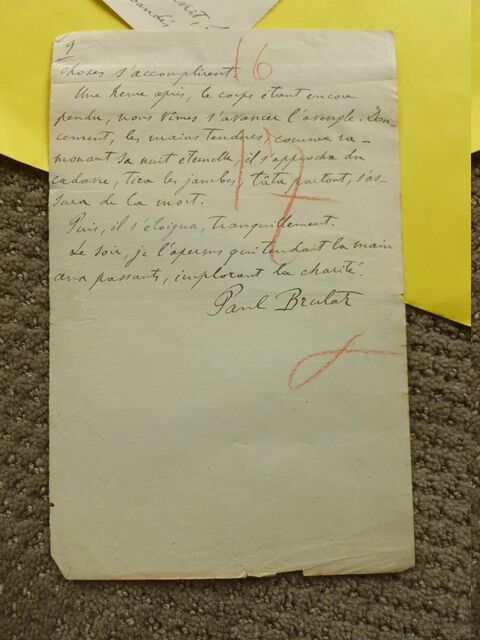 9
16
choses s'accomplirent.
Une heure après, le corps étant encore
pendu, nous vîmes s'avancer l'aveugle. Dou-
cement, les mains tendues, comme ra-
mouant sa nuit éternelle, il s'approcha du
cadavre, tira les jambes, tâta partout, s'as-
sura de la mort.
17
Puis, il s'éloigna, tranquillement.
Le soir, je l'aperçus qui tendait la main
aux passants, implorant la charité.
Paul Brulat